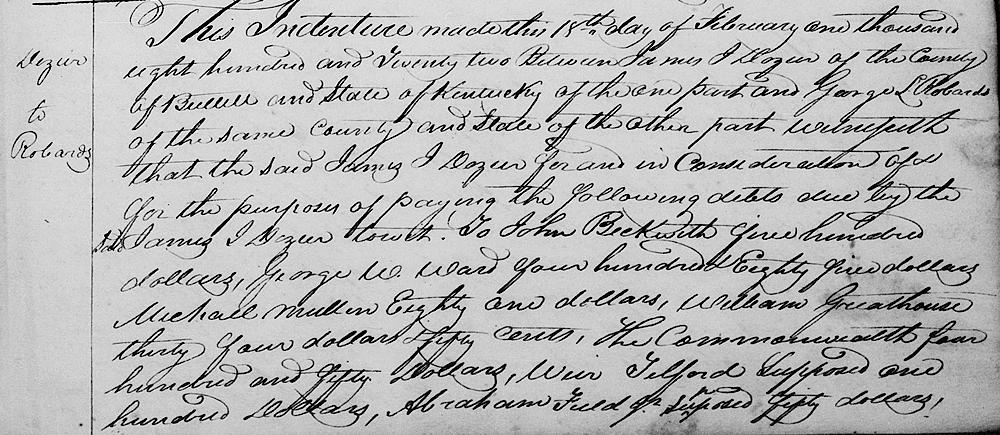 Dozier
to
Robards
This Indenture made this 18th day of February one thousand
eight hundred and Twenty two Between James I Dozier of the County
of Bullitt and State of Kentucky of the one part and George L Robards
of the same County and State of the other part Witnesseth
that the said James I Dozier for and in Consideration of &
for the purposes of paying the following debts due by the
sd James I Dozier towit. To John Beckwith five hundred
dollars, George W. Ward four hundred Eighty five dollars
Michael Mullen Eighty one dollars, William Greathouse
thirty four dollars fifty cents, The Commonwealth four
hundred and fifty Dollars, Weir Tilford Supposed one
hundred Dollars, Abraham Field Jr Supposed fifty dollars,